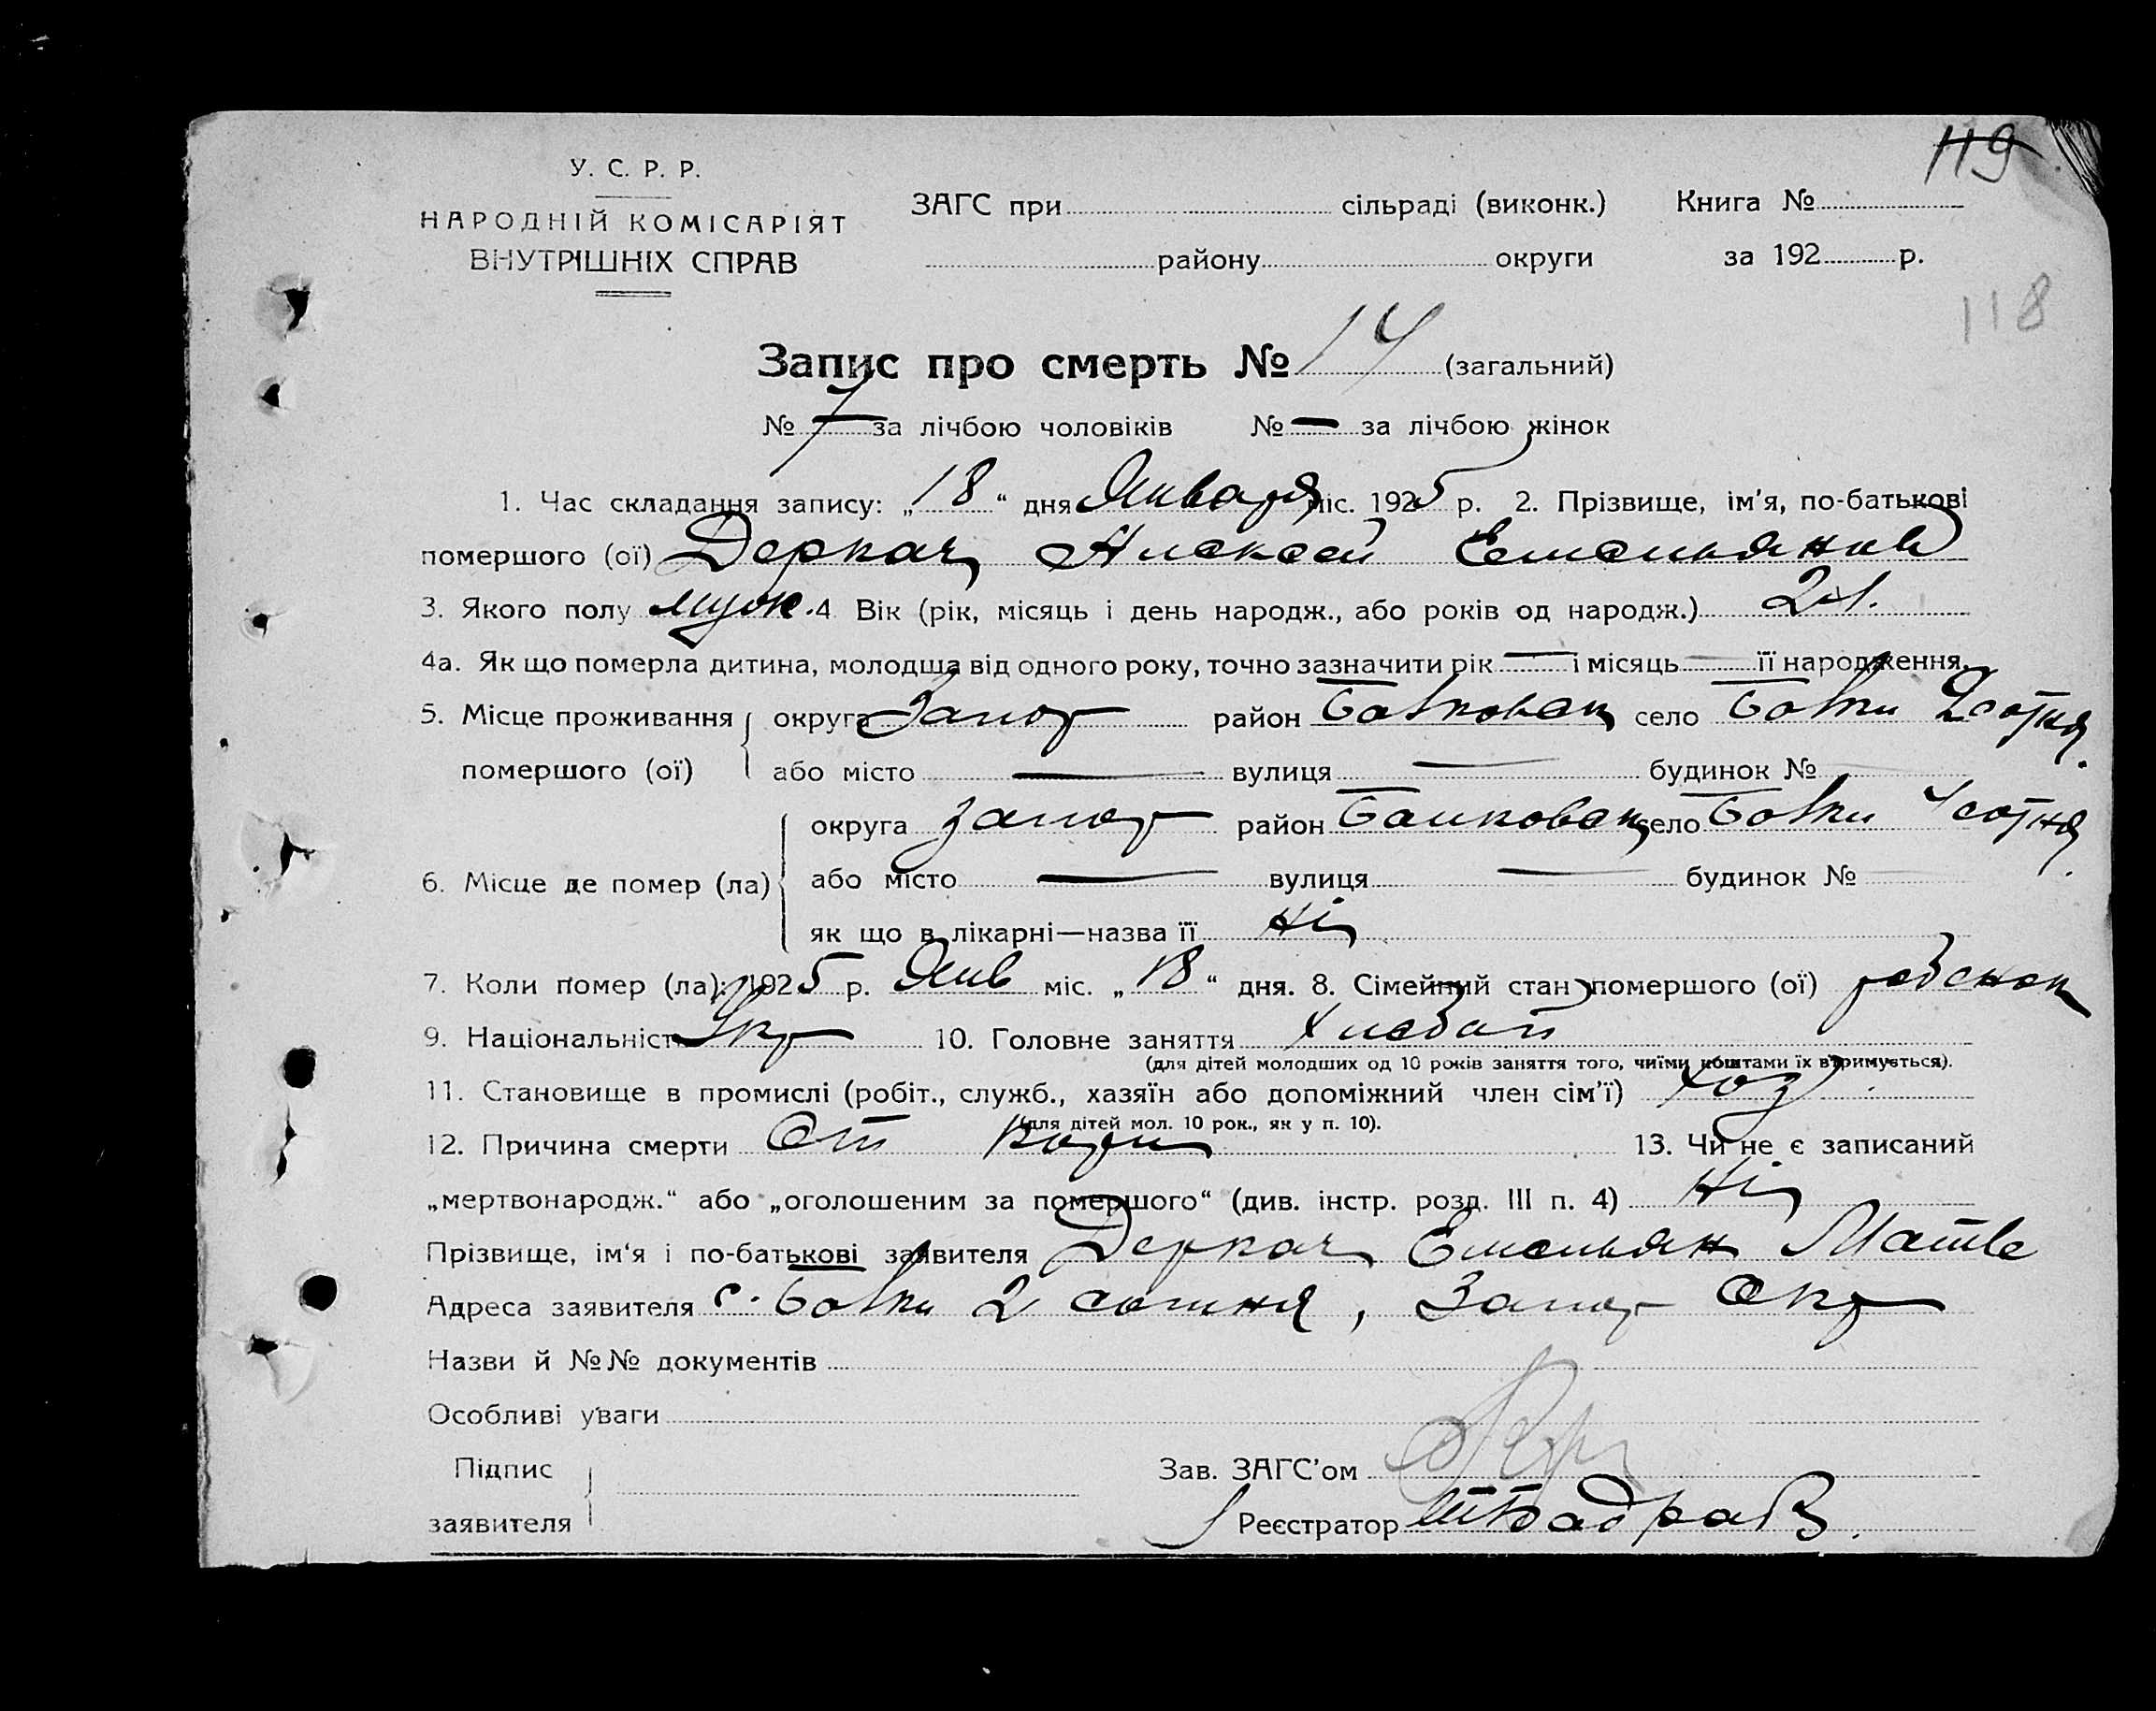 119
У. С. Р. Р.
НАРОДНІЙ КОМІСАРІЯТ
ВНУТРІШНІХ СПРАВ
ЗАГС при сільраді (виконк.) Книга №
району округи за 192 р.
118
Запис про смерть № 14 (загальний)
№ 7 за лічбою чоловіків № — за лічбою жінок
1. Час складання запису: „18“ дня Января міс. 1925 р. 2. Прізвище, ім'я, по-батькові
помершого (ої) Деркач Алексей Емельянов
3. Якого полу муж. 4 Вік (рік, місяць і день народж., або років од народж.)
4а. Як що померла дитина, молодша від одного року, точно зазначити рік — і місяць — її народження.
5. Місце проживання помершого (ої) округа Запор район село Балки 2 сотня.
або місто — вулиця — будинок № —
6. Місце де помер (ла) округа Запор район село Балки сотня.
або місто — вулиця — будинок № —
як що в лікарні—назва її Ні
7. Коли помер (ла): 1925 р. Янв міс. „18“ дня. 8. Сімейний стан помершого (ої) ребенок
9. Національність Укр 10. Головне заняття Хлебоп
(для дітей молодших од 10 років заняття того, чиїми коштами їх втримується).
11. Становище в промислі (робіт., служб., хазяїн або допоміжний член сім'ї) хоз
(для дітей мол. 10 рок., як у п. 10).
12. Причина смерти От кори 13. Чи не є записаний
„мертвонародж.“ або „оголошеним за помершого“ (див. інстр. розд. III п. 4) Ні
Прізвище, ім'я і по-батькові заявителя Деркач Емельян Матве
Адреса заявителя с. Балки 2 сотня, Запор Окр
Назви й №№ документів
Особливі уваги
Підпис заявителя
Зав. ЗАГС'ом
Реєстратор